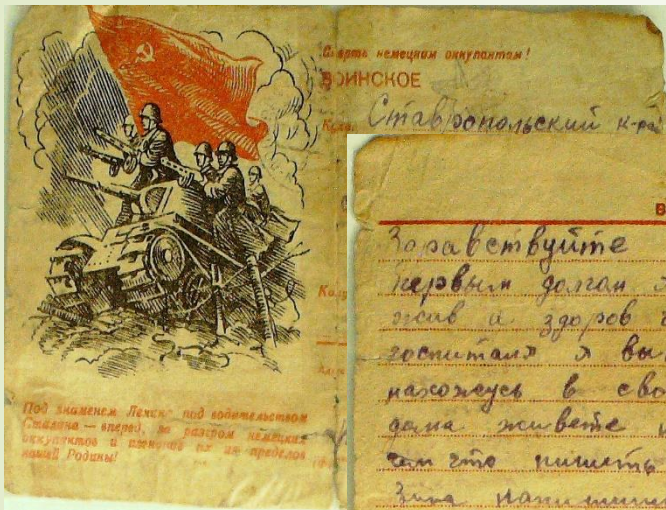 Смерть немецким оккупантам!
ВОИНСКОЕ
Куда
Ставропольский к-рай
Под знаменем Ленина под водительством
Сталина — вперед, за разгром немецких
оккупантов и изгнание их из пределов
нашей Родины!
Здравствуйте
первым долгом я
жив и здоров
госпиталя я вы
нахожусь в сво
дома живете и
там что пишеть
Зина напиши